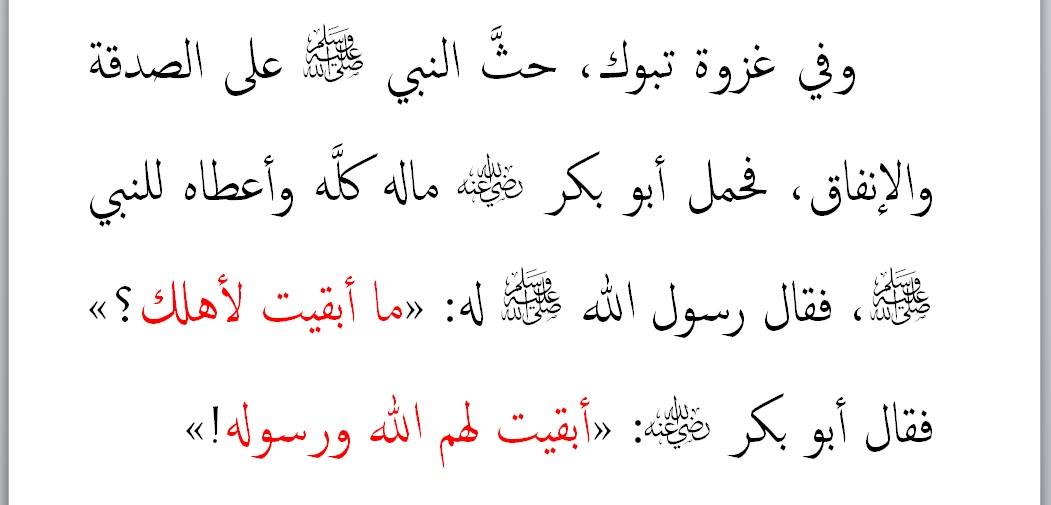 وفي غزوة تبوك، حثَّ النبي ﷺ على الصدقة
والإنفاق، فحمل أبو بكر رضي الله عنه ماله كلَّه وأعطاه للنبي
ﷺ، فقال رسول الله ﷺ له: «ما أبقيت لأهلك؟»
فقال أبو بكر رضي الله عنه: «أبقيت لهم الله ورسوله!»